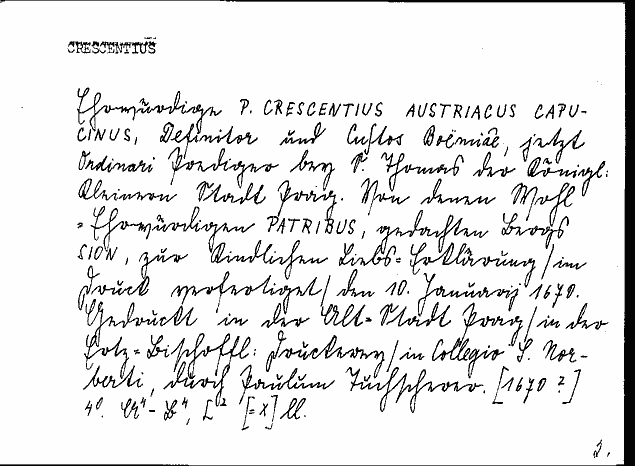 CRESCENTIUS
Ehrwürdige P. CRESCENTIUS AUSTRIACUS CAPU-
CINUS, Definitor und Custos Boëmiae, jetzt
Ordinari Prediger bey S. Thomas der Königl:
Kleinern Stadt Prag. Von denen Wohl
=Ehrwürdigen PATRIBUS, gedachten Bergs
SION, zur Kindlichen Liebs=Erklärung/im
Druck verfertiget/ den 10. Januarij 1670.
Gedruckt in der Alt=Stadt Prag/in der
Ertz=Bischoffl: Druckerey/in Collegio S. Nor-
berti, durch Paulum Tuchscherer. [1670?]
4°. A⁴-B⁴, C² [=X] ll.
2.